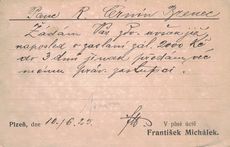 Pane R. Ervín Brenec
Žádám Vás
naposled o zaslání zál. 2000 Kč
do 3 dnů jinak předám věc
mému práv. zástupci.
Plzeň, dne 10./6.25. V plné úctě
František Michálek.